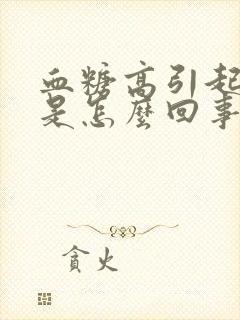 血糖高引起
是怎麼回事
貪火